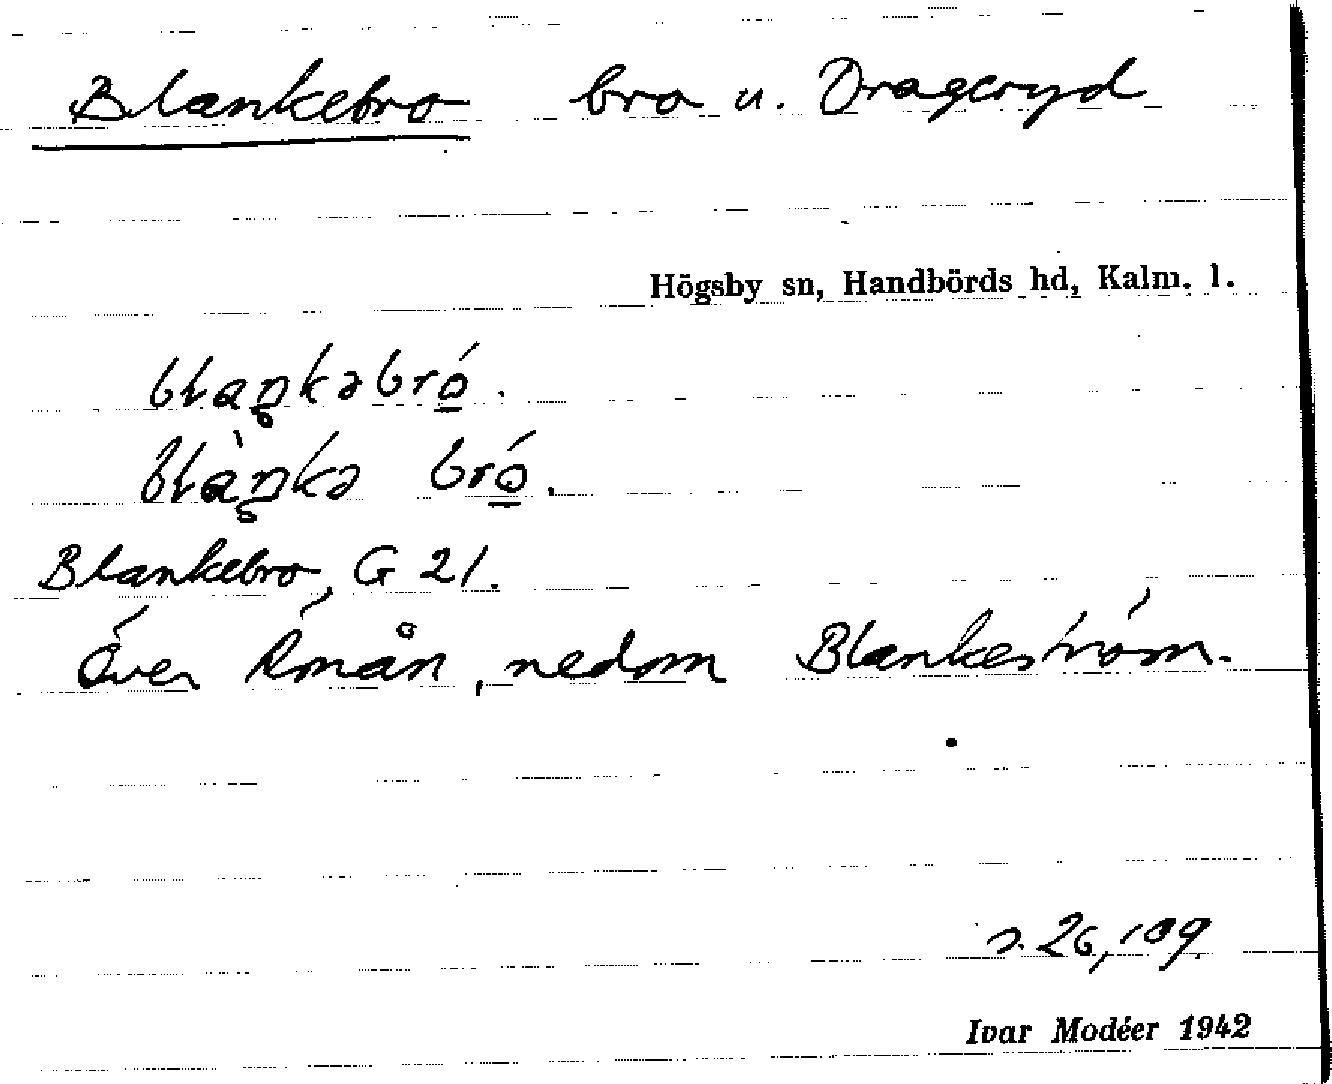 Blankebro bro u. Drageryd
Högsby sn, Handbörds hd, Kalm. l.
blaŋkəbró.
blàŋkə bró.
Blankebro, G 21.
Över Emån, nedom Blankeström.
s. 26, 109.
Ivar Modéer 1942